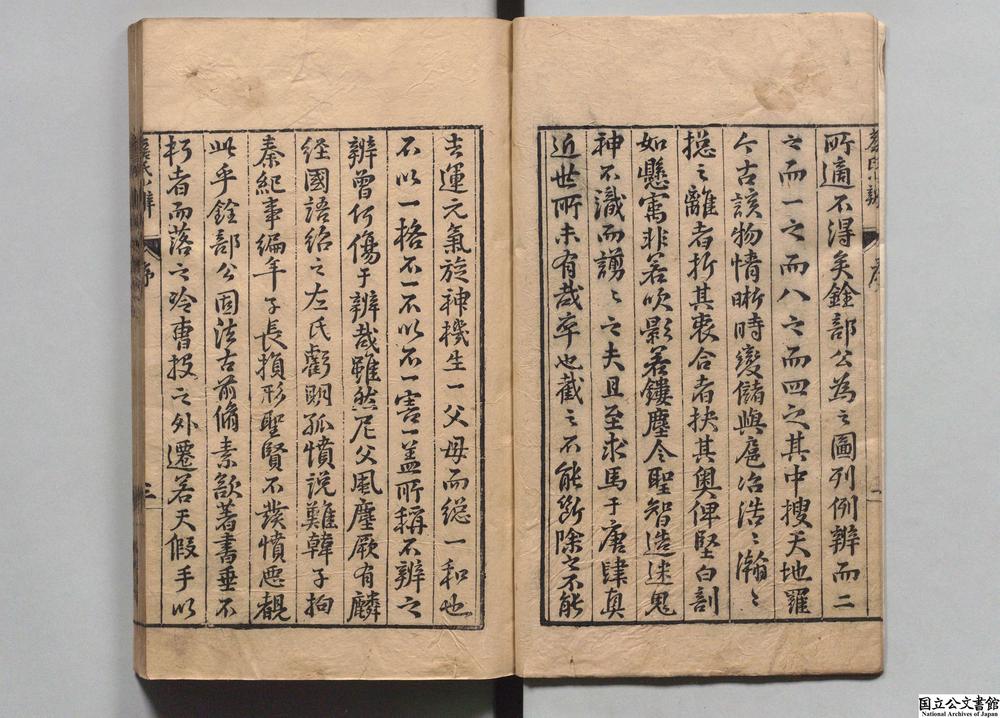 所適不得矣銓部公為之圖列例辨而二
之而一之而八之而四之其中搜天地羅
今古該物情晰時變儲與扈冶浩〻瀚〻
揔之離者折其衷合者抉其奧俾堅白剖
如懸寓非若吹影若鏤塵令聖智造迷鬼
神不識而謗〻之夫且至求馬于唐肆真
近世所未有哉卒也截之不能斷除之不能
去運元氣旋神機生一父母而緫一和也
不以一格不一不以不一害一盖所稱不辨之
辨曾何傷于辨哉雖然尼父風塵厥有麟
經國語絡之左氏虧明孤憤說難韓子拘
秦紀事編年子長損形聖賢不發憤惡覩
此乎銓部公固法古前脩素欲著書垂不
朽者而落之冷曹投之外遷若天假手以
序
三
国立公文書館
National Archives of Japan